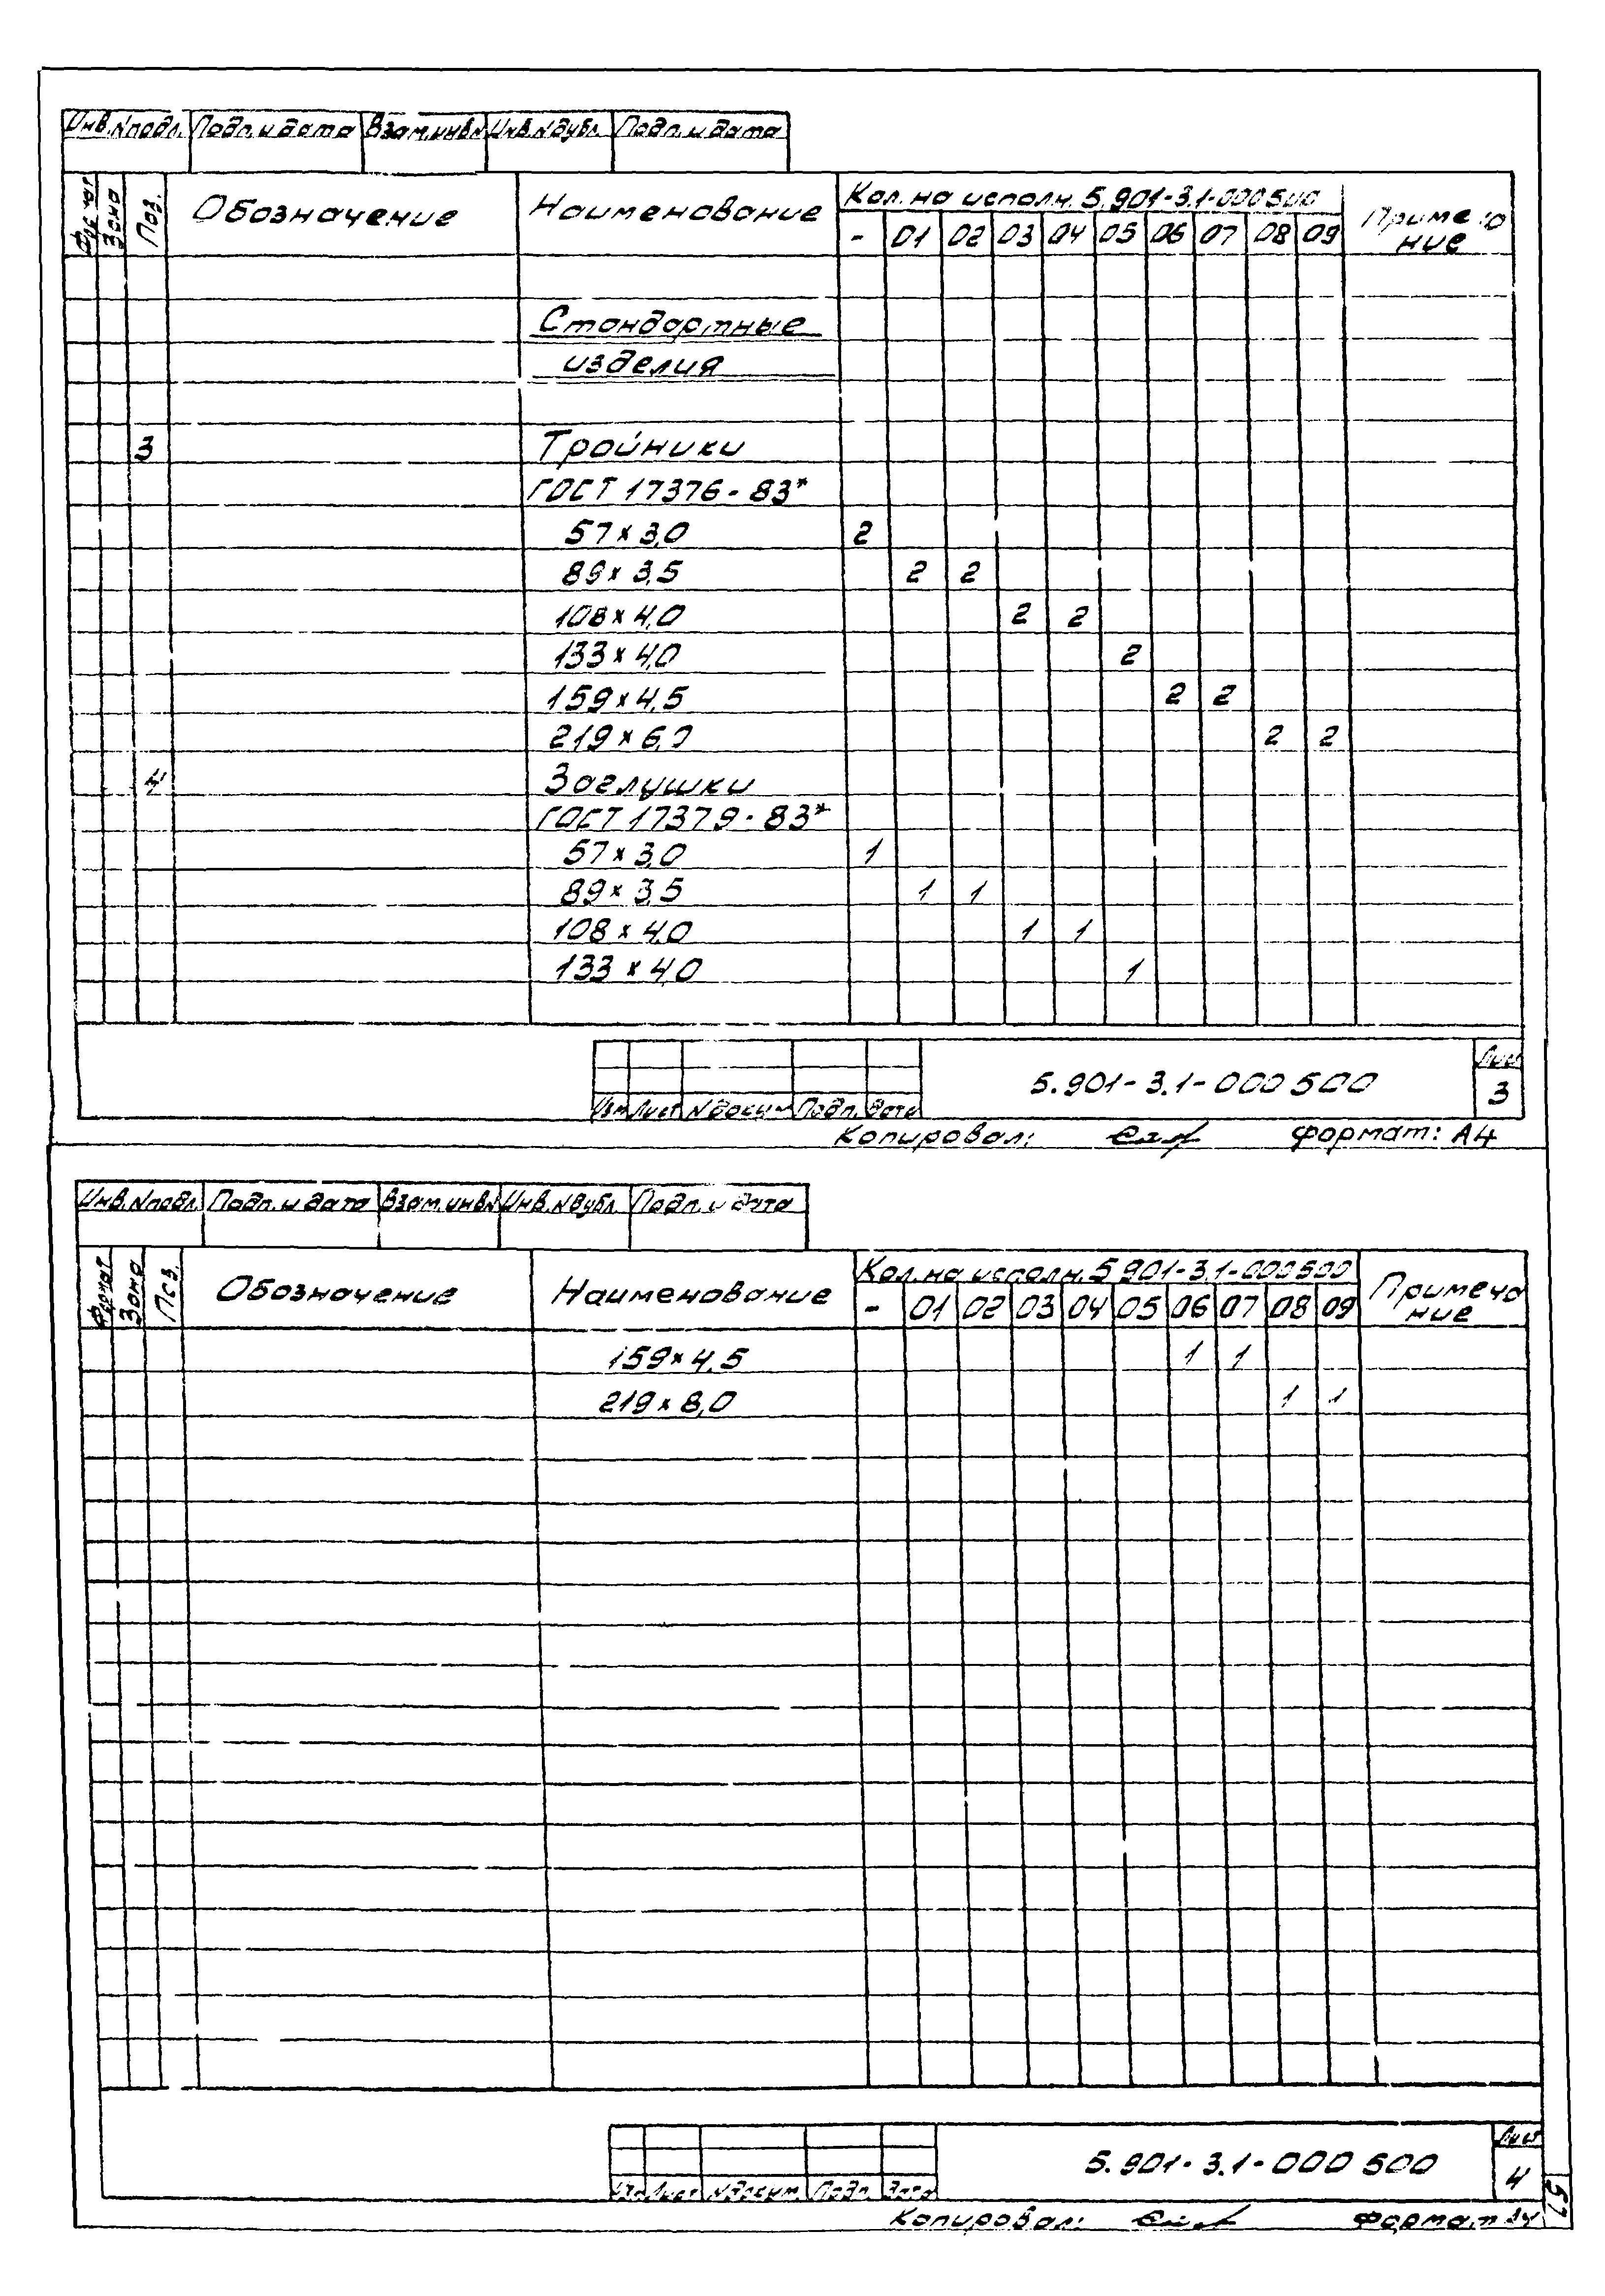 Инв.№подл. Подп. и дата Взам.инв№ Инв.№дубл. Подп. и дата
Формат Зона Поз. Обозначение Наименование Кол. на исполн. 5.901-3.1-000500 Примеча
- 01 02 03 04 05 06 07 08 09 ние
Стандартные
изделия
3 Тройники
ГОСТ 17376-83*
57×3,0 2
89×3,5 2 2
108×4,0 2 2
133×4,0 2
159×4,5 2 2
219×6,0 2 2
4 Заглушки
ГОСТ 17379-83*
57×3,0 1
89×3,5 1 1
108×4,0 1 1
133×4,0 1
5.901-3.1-000500 Лист
3
Изм Лист №докум Подп. Дата
Копировал: Формат: А4
Инв.№подл. Подп. и дата Взам.инв№ Инв.№дубл. Подп. и дата
Формат Зона Поз. Обозначение Наименование Кол. на исполн. 5.901-3.1-000500 Примеча
- 01 02 03 04 05 06 07 08 09 ние
159×4,5 1 1
219×8,0 1 1
5.901-3.1-000500 Лист
4
Изм Лист №докум. Подп. Дата
Копировал: Формат А4